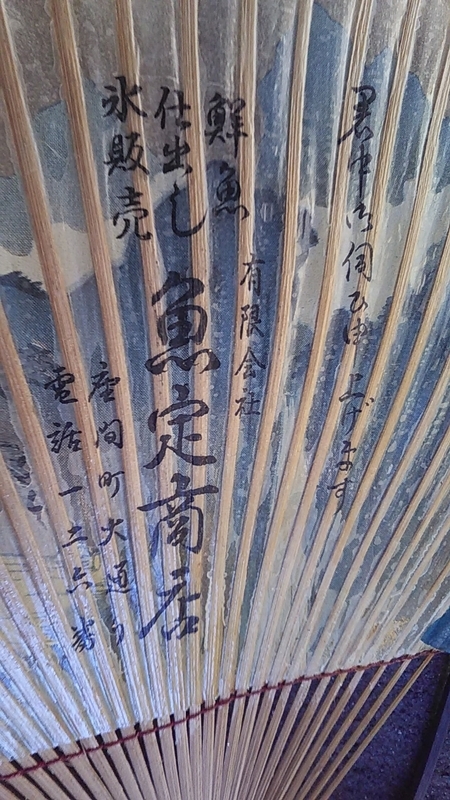 暑中御伺ひ申上げます
鮮魚
仕出し
氷販売
有限会社
魚定商店
座間町大通り
電話一三六番